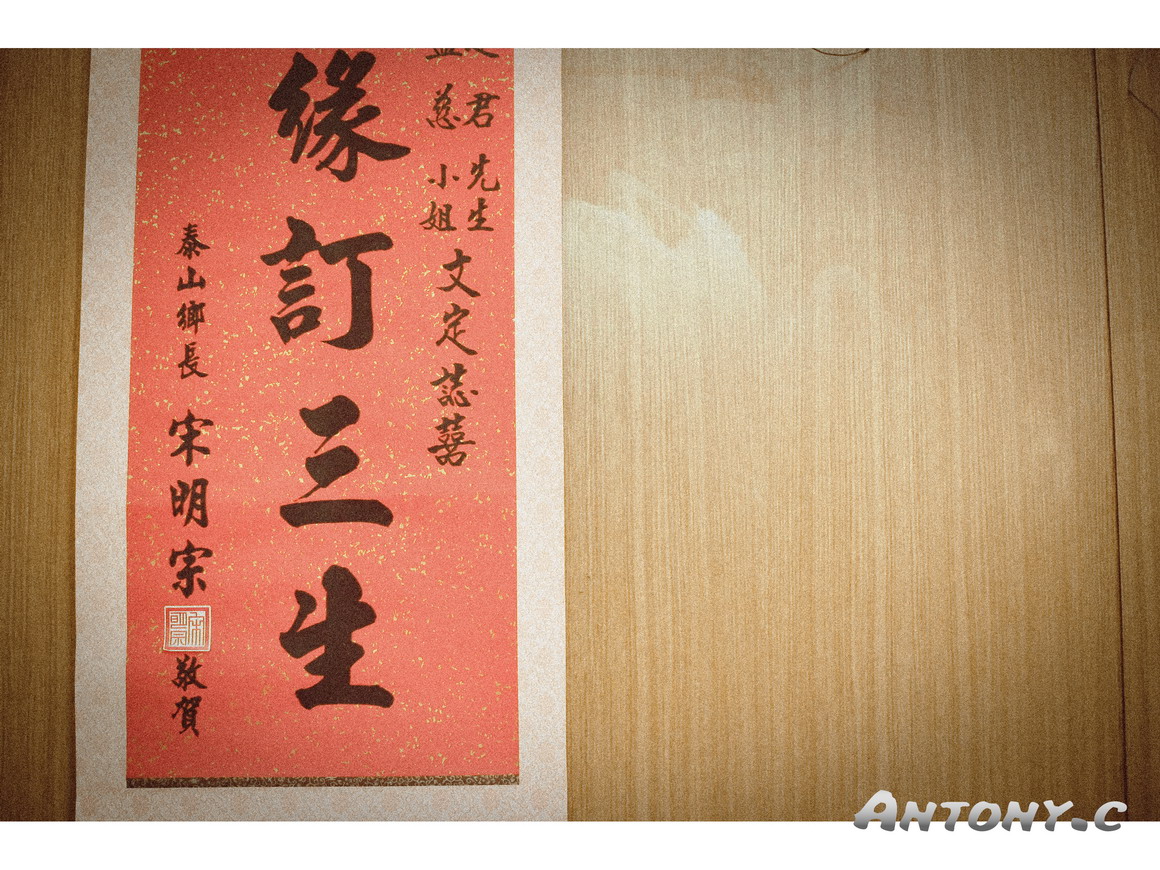 君先生
慈小姐
文定誌囍
緣訂三生
泰山鄉長 宋明宗 敬賀
Antony.c